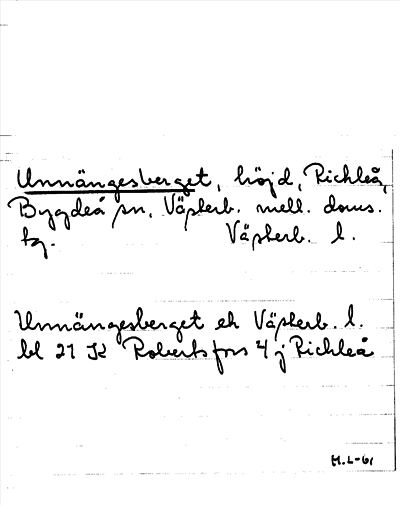 Unnängesberget, höjd, Rickleå,
Bygdeå sn, Västerb. mell. doms.
tg. Västerb. l.
Unnängesberget ek Västerb. l.
bl 21 K Robertsfors 4 j Rickleå
H.L-61